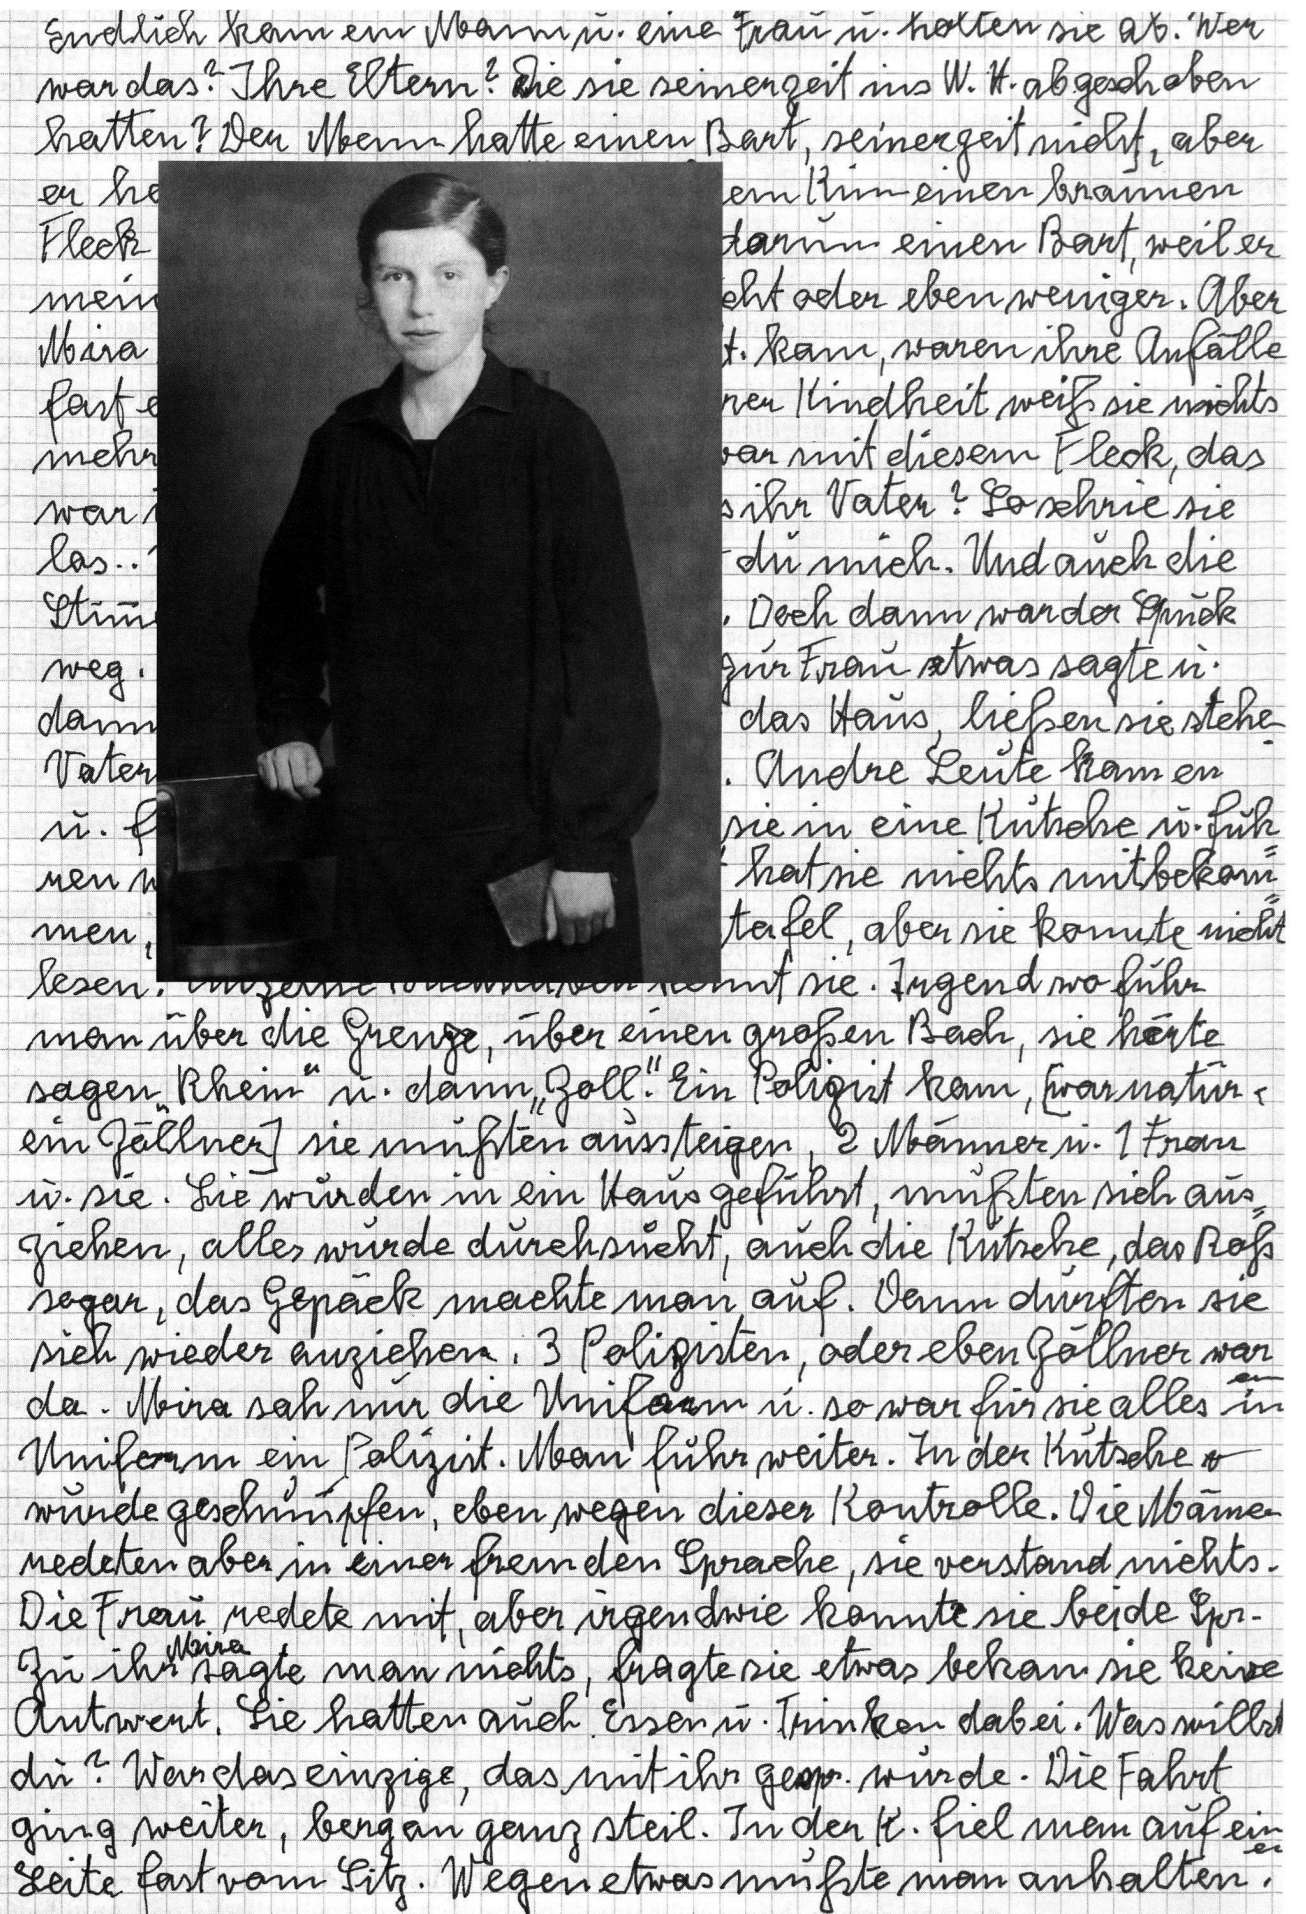 Endlich kam ein Mann u. eine Frau u. holten sie ab. Wer
war das? Ihre Eltern? Die sie seinerzeit ins W. H. abgeschoben
hatten? Der Mann hatte einen Bart, seinerzeit nicht, aber
er ha em Kinn einen braunen
Fleck darum einen Bart, weil er
mein cht oder eben weniger. Aber
Mira t. kam, waren ihre Anfälle
fast e ner Kindheit weiß sie nichts
mehr ar mit diesem Fleck, das
war s ihr Vater? So schrie sie
los.. du mich. Und auch die
Stim̄ . Doch dann war der Spuck
weg. zur Frau etwas sagte u.
dann das Haus, ließen sie stehe
Vater . Andre Leute kamen
u. f sie in eine Kutsche u. fuh
ren w hat sie nichts mitbekom=
men, tafel, aber sie konnte nicht
lesen. einzelne nnt sie. Irgendwo fuhr
man über die Grenze, über einen großen Bach, sie hörte
sagen „Rhein“ u. dann „Zoll.“ Ein Polizist kam, [war natür.
ein Zöllner] sie mußten aussteigen, 2 Männer u. 1 Frau
u. sie. Sie wurden in ein Haus geführt, mußten sich aus=
ziehen, alles wurde durchsucht, auch die Kutsche, das Roß
sogar, das Gepäck machte man auf. Dann durften sie
sich wieder anziehen. 3 Polizisten, oder eben Zöllner war
en
da. Mira sah nur die Uniform u. so war für sie alles in
Uniform ein Polizist. Man fuhr weiter. In der Kutsche
wurde geschumpfen, eben wegen dieser Kontrolle. Die Mäñer
redeten aber in einer fremden Sprache, sie verstand nichts.
Die Frau redete mit, aber irgendwie konnte sie beide Spr.
Zu ihr Mira sagte man nichts, fragte sie etwas bekam sie keine
Antwort. Sie hatten auch Essen u. Trinken dabei. Was willst
du? War das einzige, das mit ihr gespr. wurde. Die Fahrt
ging weiter, bergan ganz steil. In der K. fiel man auf ein
er
Seite fast vom Sitz. Wegen etwas mußte man anhalten.